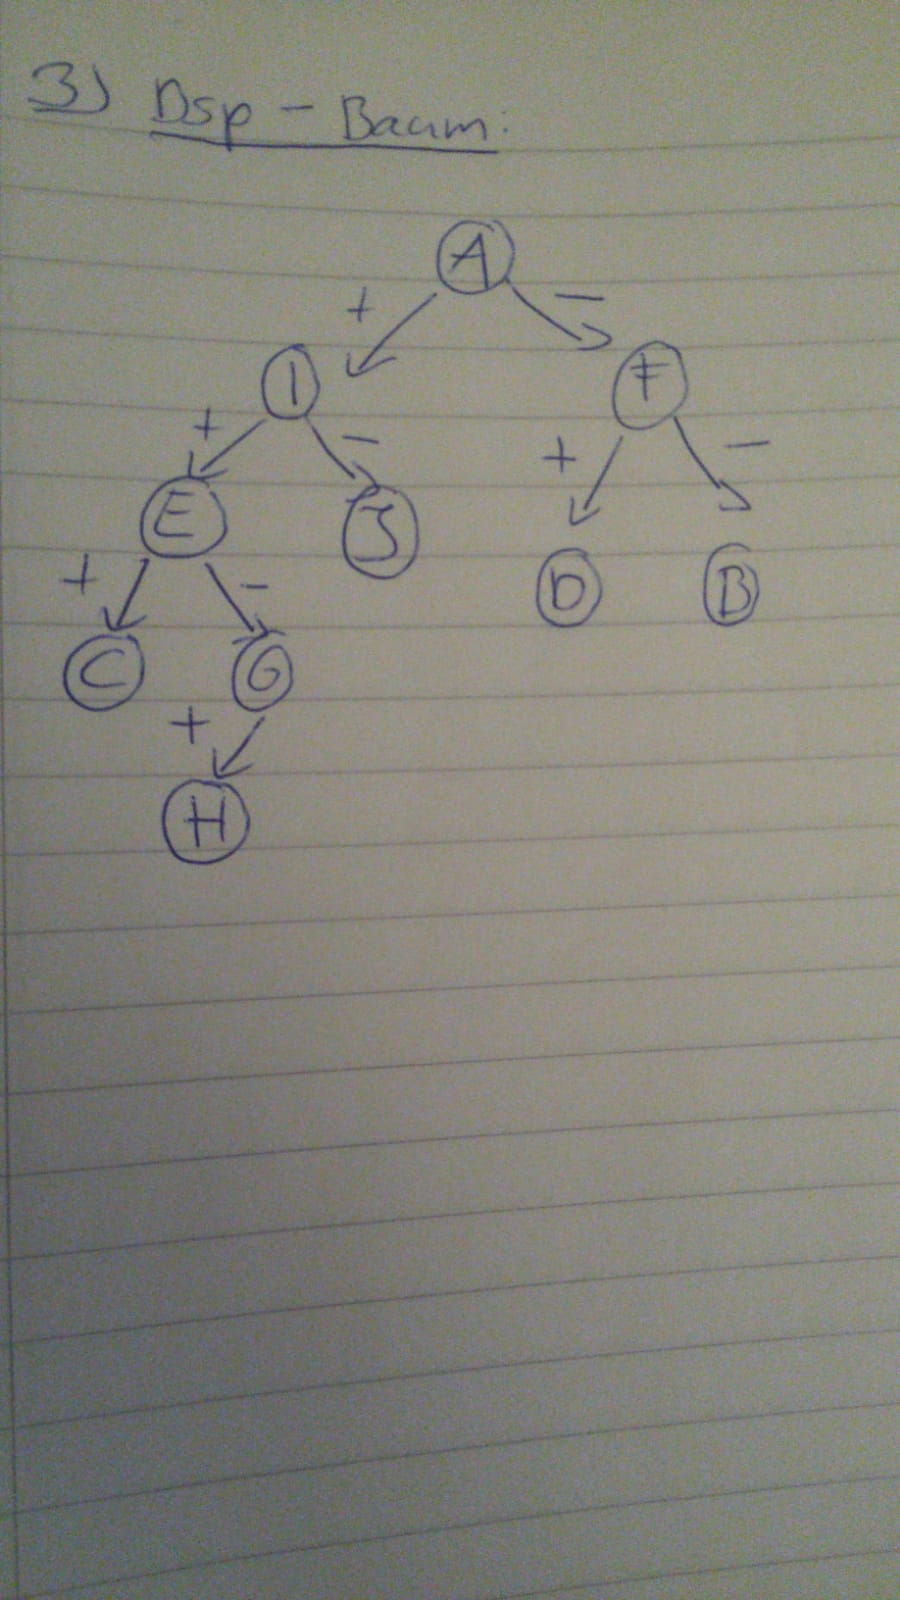 3) Dsp - Baum:
A
+ -
I F
+ - + -
E J D B
+ -
C G
+
H